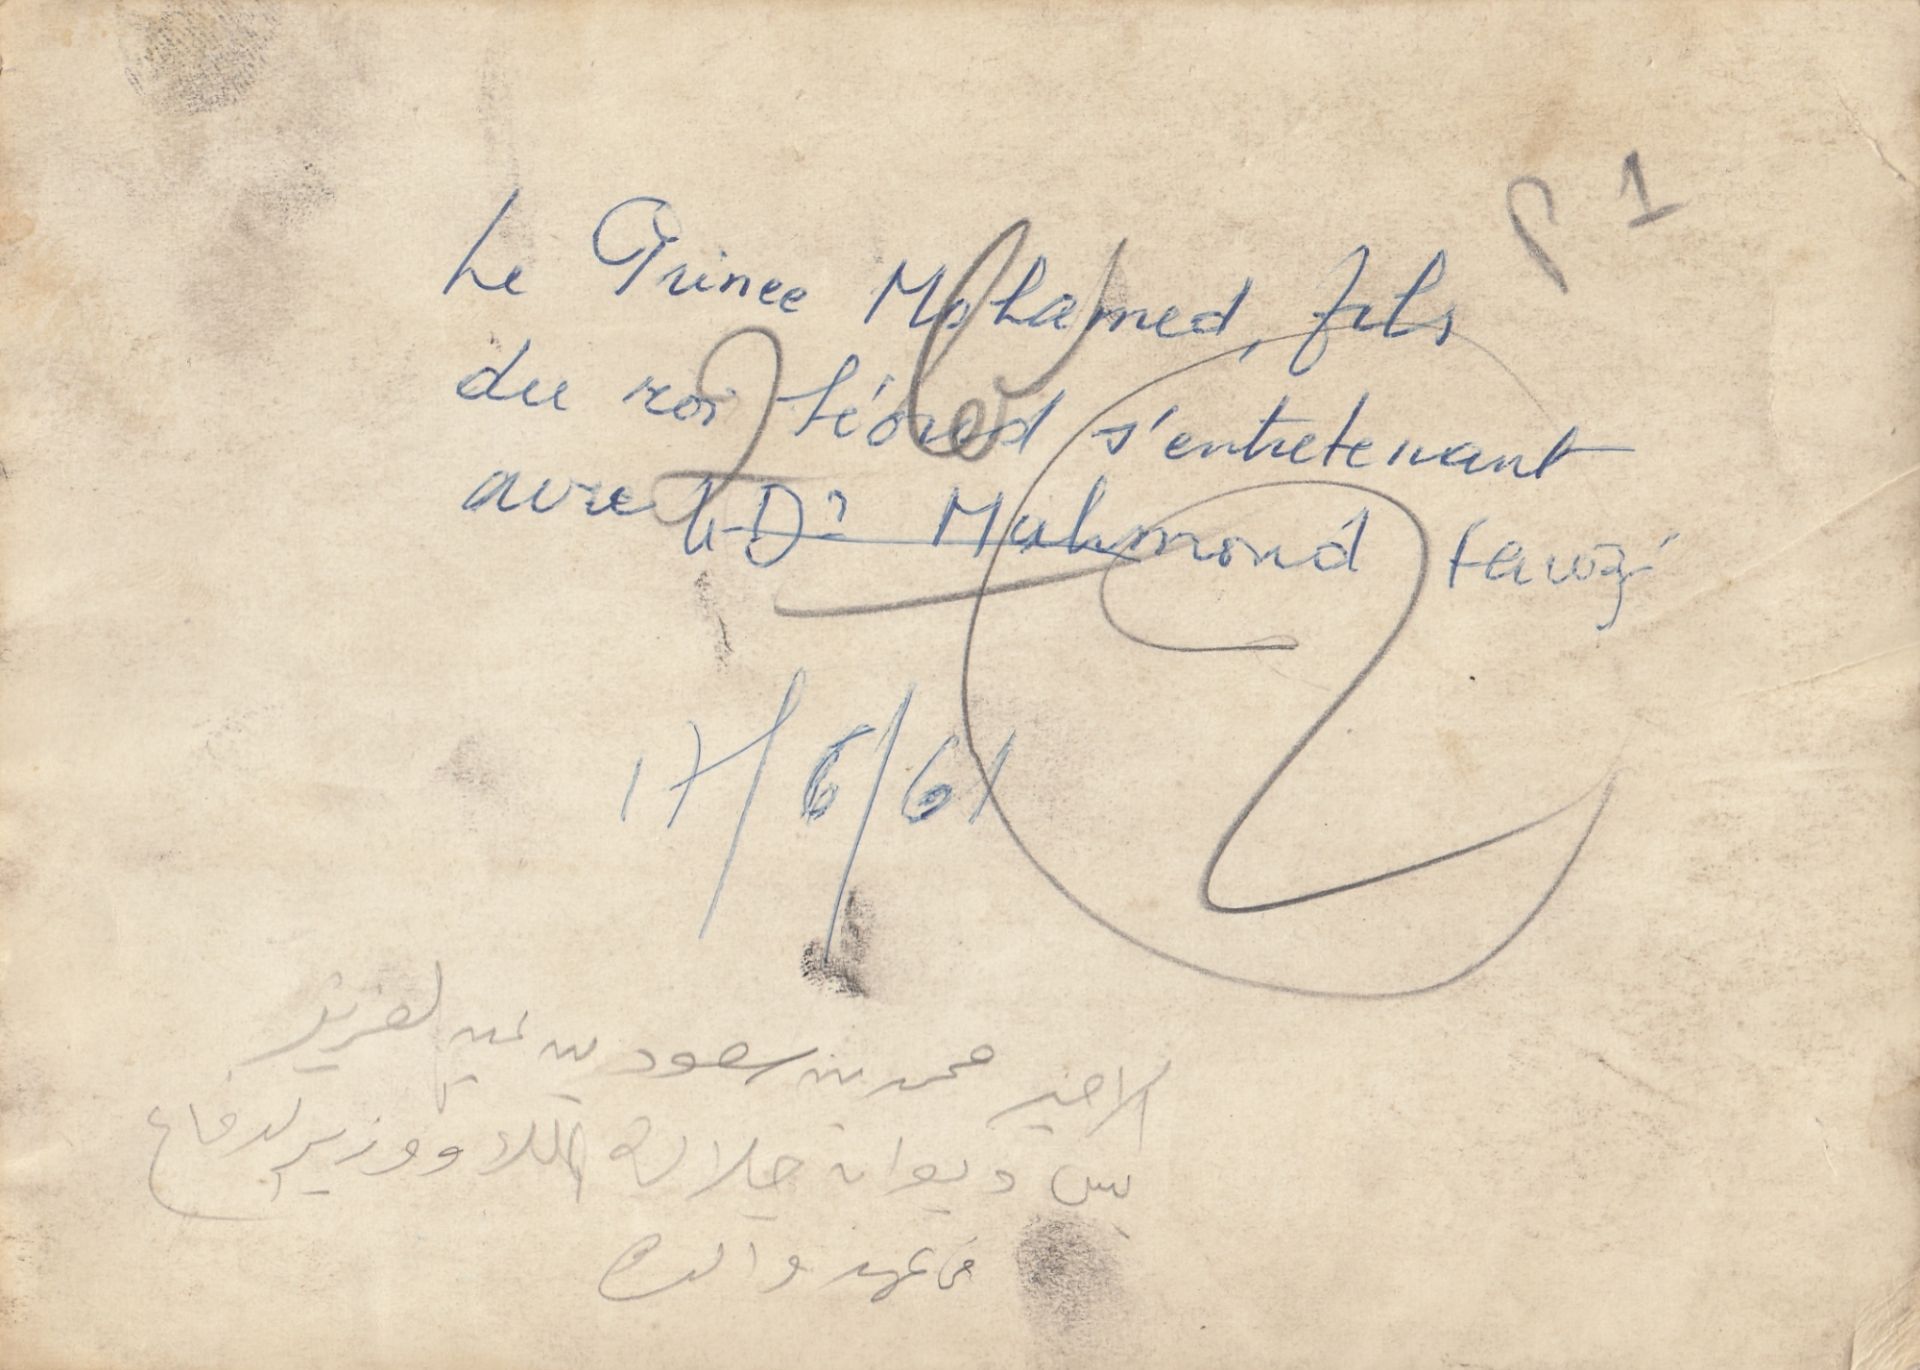 P 1
Le Prince Mohamed, fils
du roi Séoud s'entretenant
avec le Dr Mahmoud Fawzi
17/6/61
الامير محمد بن سعود بن عبد العزيز
رئيس ديوان جلالة الملك ووزير الدفاع
في عهد والده